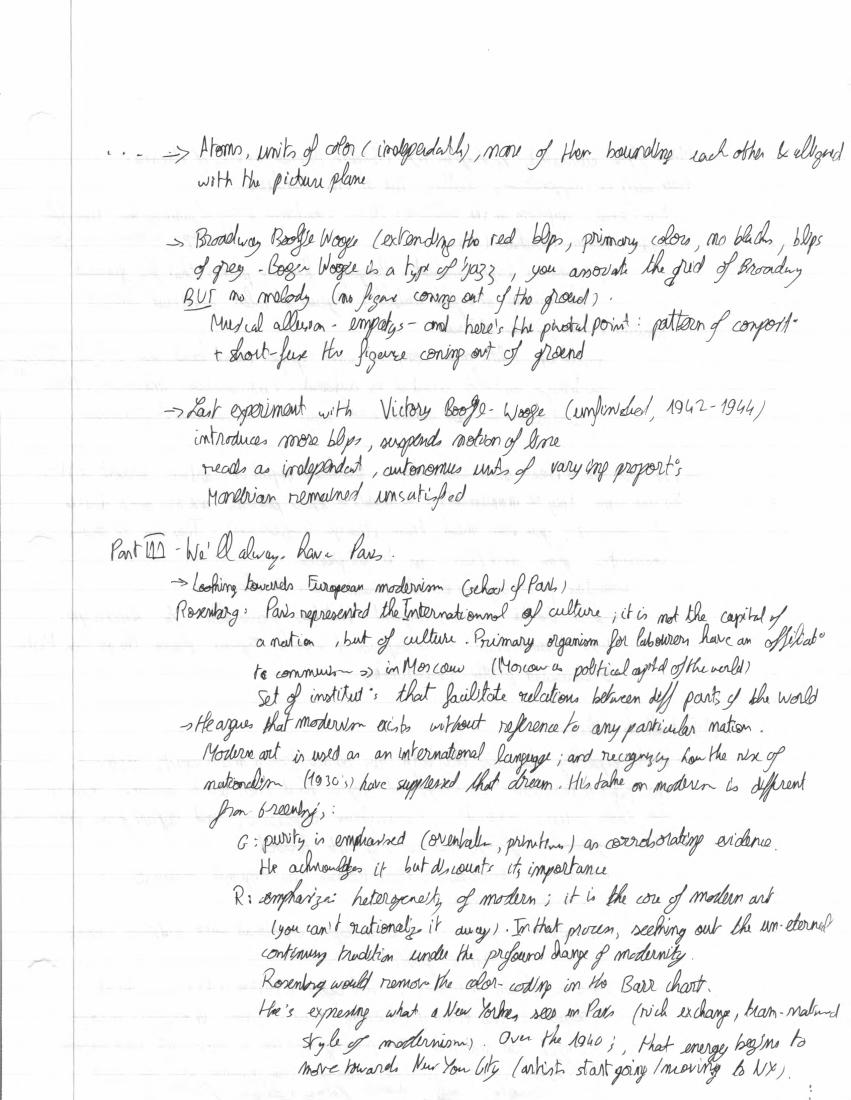 ... => Atoms, units of color (independently), none of them bounding each other & alligned
with the picture plane
→ Broadway Boogie Woogie (extending the red blips, primary colors, no blacks, blips
of grey - Boogie Woogie is a type of jazz, you associate the grid of Broadway
BUT no melody (no figure coming out of the ground).
Musical allusion - - and here's the pivotal point: pattern of
+ short-fuse the figure coming out of ground
→ Last experiment with Victory Boogie-Woogie (unfinished, 1942-1944)
introduces more blips, suspends notion of line
reads as independent, autonomus units of varying proport°s
Mondrian remained unsatisfied
Part III - We'll always have Paris.
→ Looking towards European modernism (school of Paris)
Rosenberg: Paris represented the Internationnal of culture; it is not the capital of
a nation, but of culture. Primary organism for labourers have an affiliat°
to => in Moscow (Moscow as political capital of the world)
Set of institut°s that facilitate relations between diff parts of the world
→ He argues that modernism exists without reference to any particular nation.
Modern art is used as an international language; and recognizing how the rise of
nationalism (1930's) have suppressed that dream. His take on modernism is different
from Greenberg's:
G: purity is emphasised as corroborating evidence.
He acknowledges it but discounts its importance
R: emphasize: heterogeneity of modern; it is the core of modern art
(you can't rationalize it away). In that process, seeking out the un-eternal
continuing tradition under the profound change of modernity.
Rosenberg would remove the color-coding in the Barr chart.
He's expressing what a New Yorker sees in Paris (rich exchange,
style of modernism). Over the 1940's, that energy begins to
move towards New York City (artists start going/moving to NY).